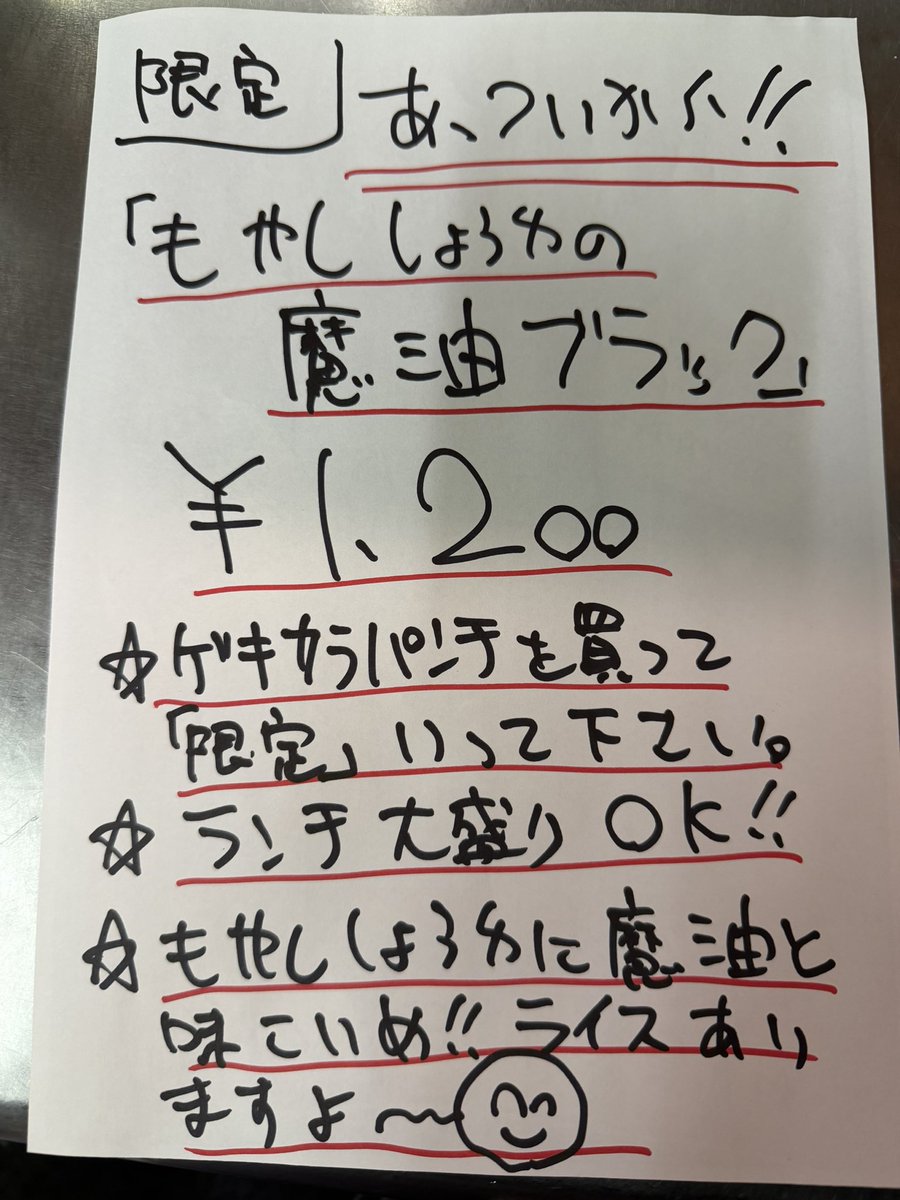 限定 あ、ついから!!
「もやししょうゆの
魔油ブラック」
¥1,200
☆ゲキカラパンチを買って
「限定」いって下さい。
☆ランチ大盛りOK!!
☆もやししょうゆに魔油と
味こいめ!!ライスあり
ますよ〜